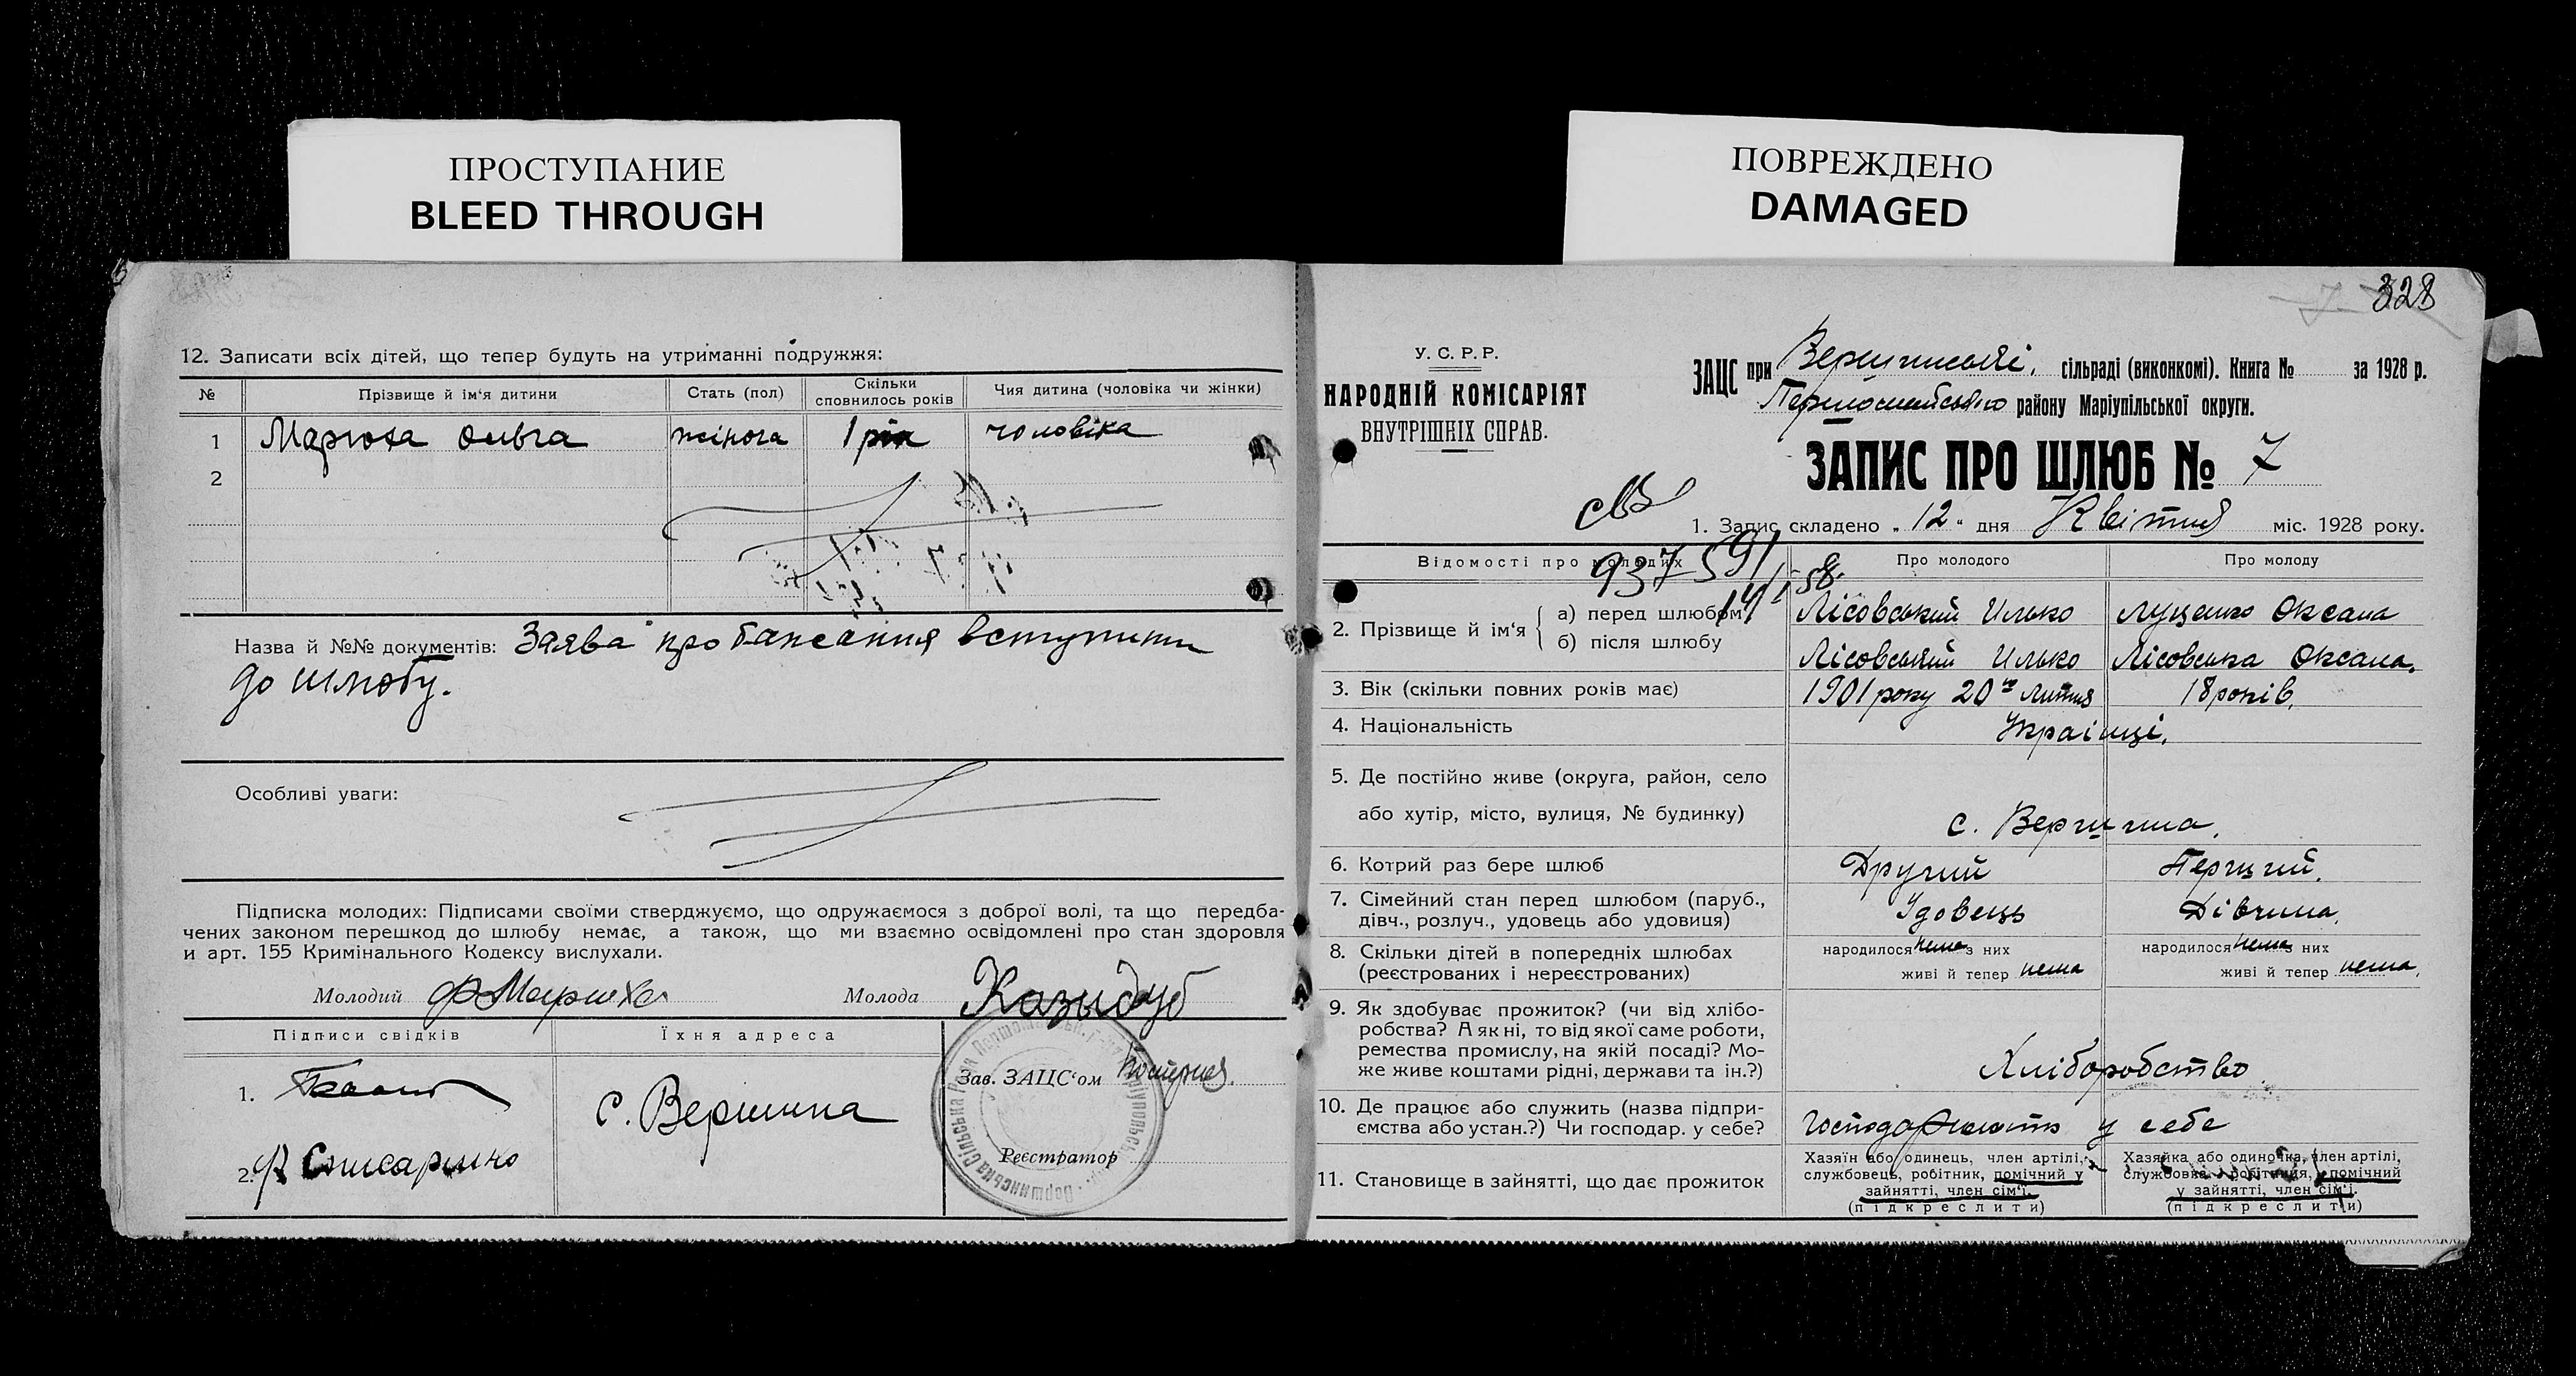 ПРОСТУПАНИЕ
BLEED THROUGH
ПОВРЕЖДЕНО
DAMAGED
12. Записати всіх дітей, що тепер будуть на утриманні подружжя:
№ Прізвище й ім‘я дитини Стать (пол) Скільки сповнилось років Чия дитина (чоловіка чи жінки)
1 Марюха Ольга жіноча 1 рік чоловіка
2
Назва й №№ документів: Заява про бажання вступити
до шлюбу.
Особливі уваги:
Підписка молодих: Підписами своїми стверджуємо, що одружаємося з доброї волі, та що передба-
чених законом перешкод до шлюбу немає, а також, що ми взаємно освідомлені про стан здоровля
и арт. 155 Кримінального Кодексу вислухали.
Молодий Ф Марюха Молода Казидуб
Підписи свідків Їхня адреса
Зав. ЗАЦС‘ом
1.
с. Вершина
2.
Реєстратор
328
У. С. Р. Р.
НАРОДНІЙ КОМІСАРІЯТ
ВНУТРІШНІХ СПРАВ.
ЗАЦС при Вершинській, сільраді (виконкомі). Книга № за 1928 р.
Першомайського району Маріупільської округи.
ЗАПИС ПРО ШЛЮБ № 7
1. Запис складено „ 12 “ дня Квітня міс. 1928 року.
937591
14/I 58.
Відомості про молодих Про молодого Про молоду
2. Прізвище й ім‘я
а) перед шлюбом Лісовський Илько Луценко Оксана
б) після шлюбу Лісовський Илько Лісовська Оксана.
3. Вік (скільки повних років має) 1901 року 20го Лютня 18 років.
4. Національність Украінці.
5. Де постійно живе (округа, район, село
або хутір, місто, вулиця, № будинку) с. Вершина.
6. Котрий раз бере шлюб Другий Перший.
7. Сімейний стан перед шлюбом (паруб.,
дівч., розлуч., удовець або удовиця) Удовець Дівчина.
8. Скільки дітей в попередніх шлюбах народилося нема з них народилося нема з них
(реєстрованих і нереєстрованих) живі й тепер нема живі й тепер нема.
9. Як здобуває прожиток? (чи від хлібо-
робства? А як ні, то від якої саме роботи,
ремества промислу, на якій посаді? Мо-
же живе коштами рідні, держави та ін.?) Хліборобство
10. Де працює або служить (назва підпри-
ємства або устан.?) Чи господар. у себе? господарюють у себе
11. Становище в зайнятті, що дає прожиток
Хазяїн або одинець, член артілі,
службовець, робітник, помічний у
зайнятті, член сім‘ї.
(підкреслити)
Хазяйка або одиночка, член артілі,
службовка, робітниця, помічний
у зайнятті, член сім‘ї.
(підкреслити)